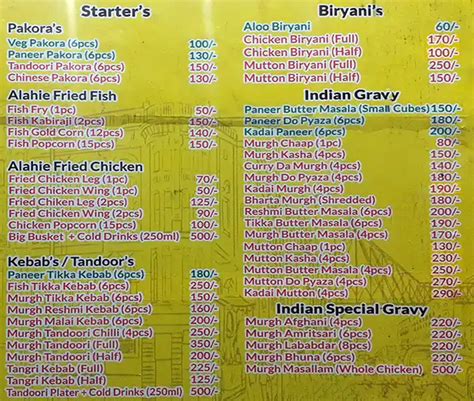 Starter's
Pakora's
Veg Pakora (6pcs) 100/-
Paneer Pakora (6pcs) 130/-
Tandoori Pakora (6pcs) 150/-
Chinese Pakora (6pcs) 130/-
Alahie Fried Fish
Fish Fry (1pc) 50/-
Fish Kabiraji (2pcs) 150/-
Fish Gold Corn (12pcs) 140/-
Fish Popcorn (15pcs) 150/-
Alahie Fried Chicken
Fried Chicken Leg (1pc) 70/-
Fried Chicken Wing (1pc) 50/-
Fried Chiken Leg (2pcs) 125/-
Fried Chicken Wing (2pcs) 90/-
Chicken Popcorn (15pcs) 100/-
Big Busket + Cold Drinks (250ml) 500/-
Kebab's / Tandoor's
Paneer Tikka Kebab (6pcs) 180/-
Fish Tikka Kebab (6pcs) 250/-
Murgh Tikka Kebab (6pcs) 150/-
Murgh Reshmi Kebab (6pcs) 160/-
Murgh Malai Kebab (6pcs) 200/-
Murgh Tandoori Chilli (4pcs) 200/-
Murgh Tandoori (Full) 350/-
Murgh Tandoori (Half) 200/-
Tangri Kebab (Full) 225/-
Tangri Kebab (Half) 125/-
Tandoori Plater + Cold Drinks (250ml) 500/-
Biryani's
Aloo Biryani 60/-
Chicken Biryani (Full) 170/-
Chicken Biryani (Half) 100/-
Mutton Biryani (Full) 250/-
Mutton Biryani (Half) 150/-
Indian Gravy
Paneer Butter Masala (Small Cubes) 150/-
Paneer Do Pyaza (6pcs) 180/-
Kadai Paneer (6pcs) 200/-
Murgh Chaap (1pc) 80/-
Murgh Kasha (4pcs) 150/-
Curry Da Murgh (4pcs) 140/-
Murgh Do Pyaza (4pcs) 180/-
Kadai Murgh (4pcs) 190/-
Bharta Murgh (Shredded) 180/-
Reshmi Butter Masala (6pcs) 200/-
Tikka Butter Masala (6pcs) 190/-
Murgh Butter Masala (4pcs) 170/-
Mutton Chaap (1pc) 130/-
Mutton Kasha (4pcs) 230/-
Mutton Butter Masala (4pcs) 250/-
Mutton Do Pyaza (4pcs) 270/-
Kadai Mutton (4pcs) 290/-
Indian Special Gravy
Murgh Afghani (4pcs) 220/-
Murgh Amritsari (6pcs) 220/-
Murgh Lababdar (8pcs) 220/-
Murgh Bhuna (6pcs) 220/-
Murgh Masallam (Whole Chicken) 500/-